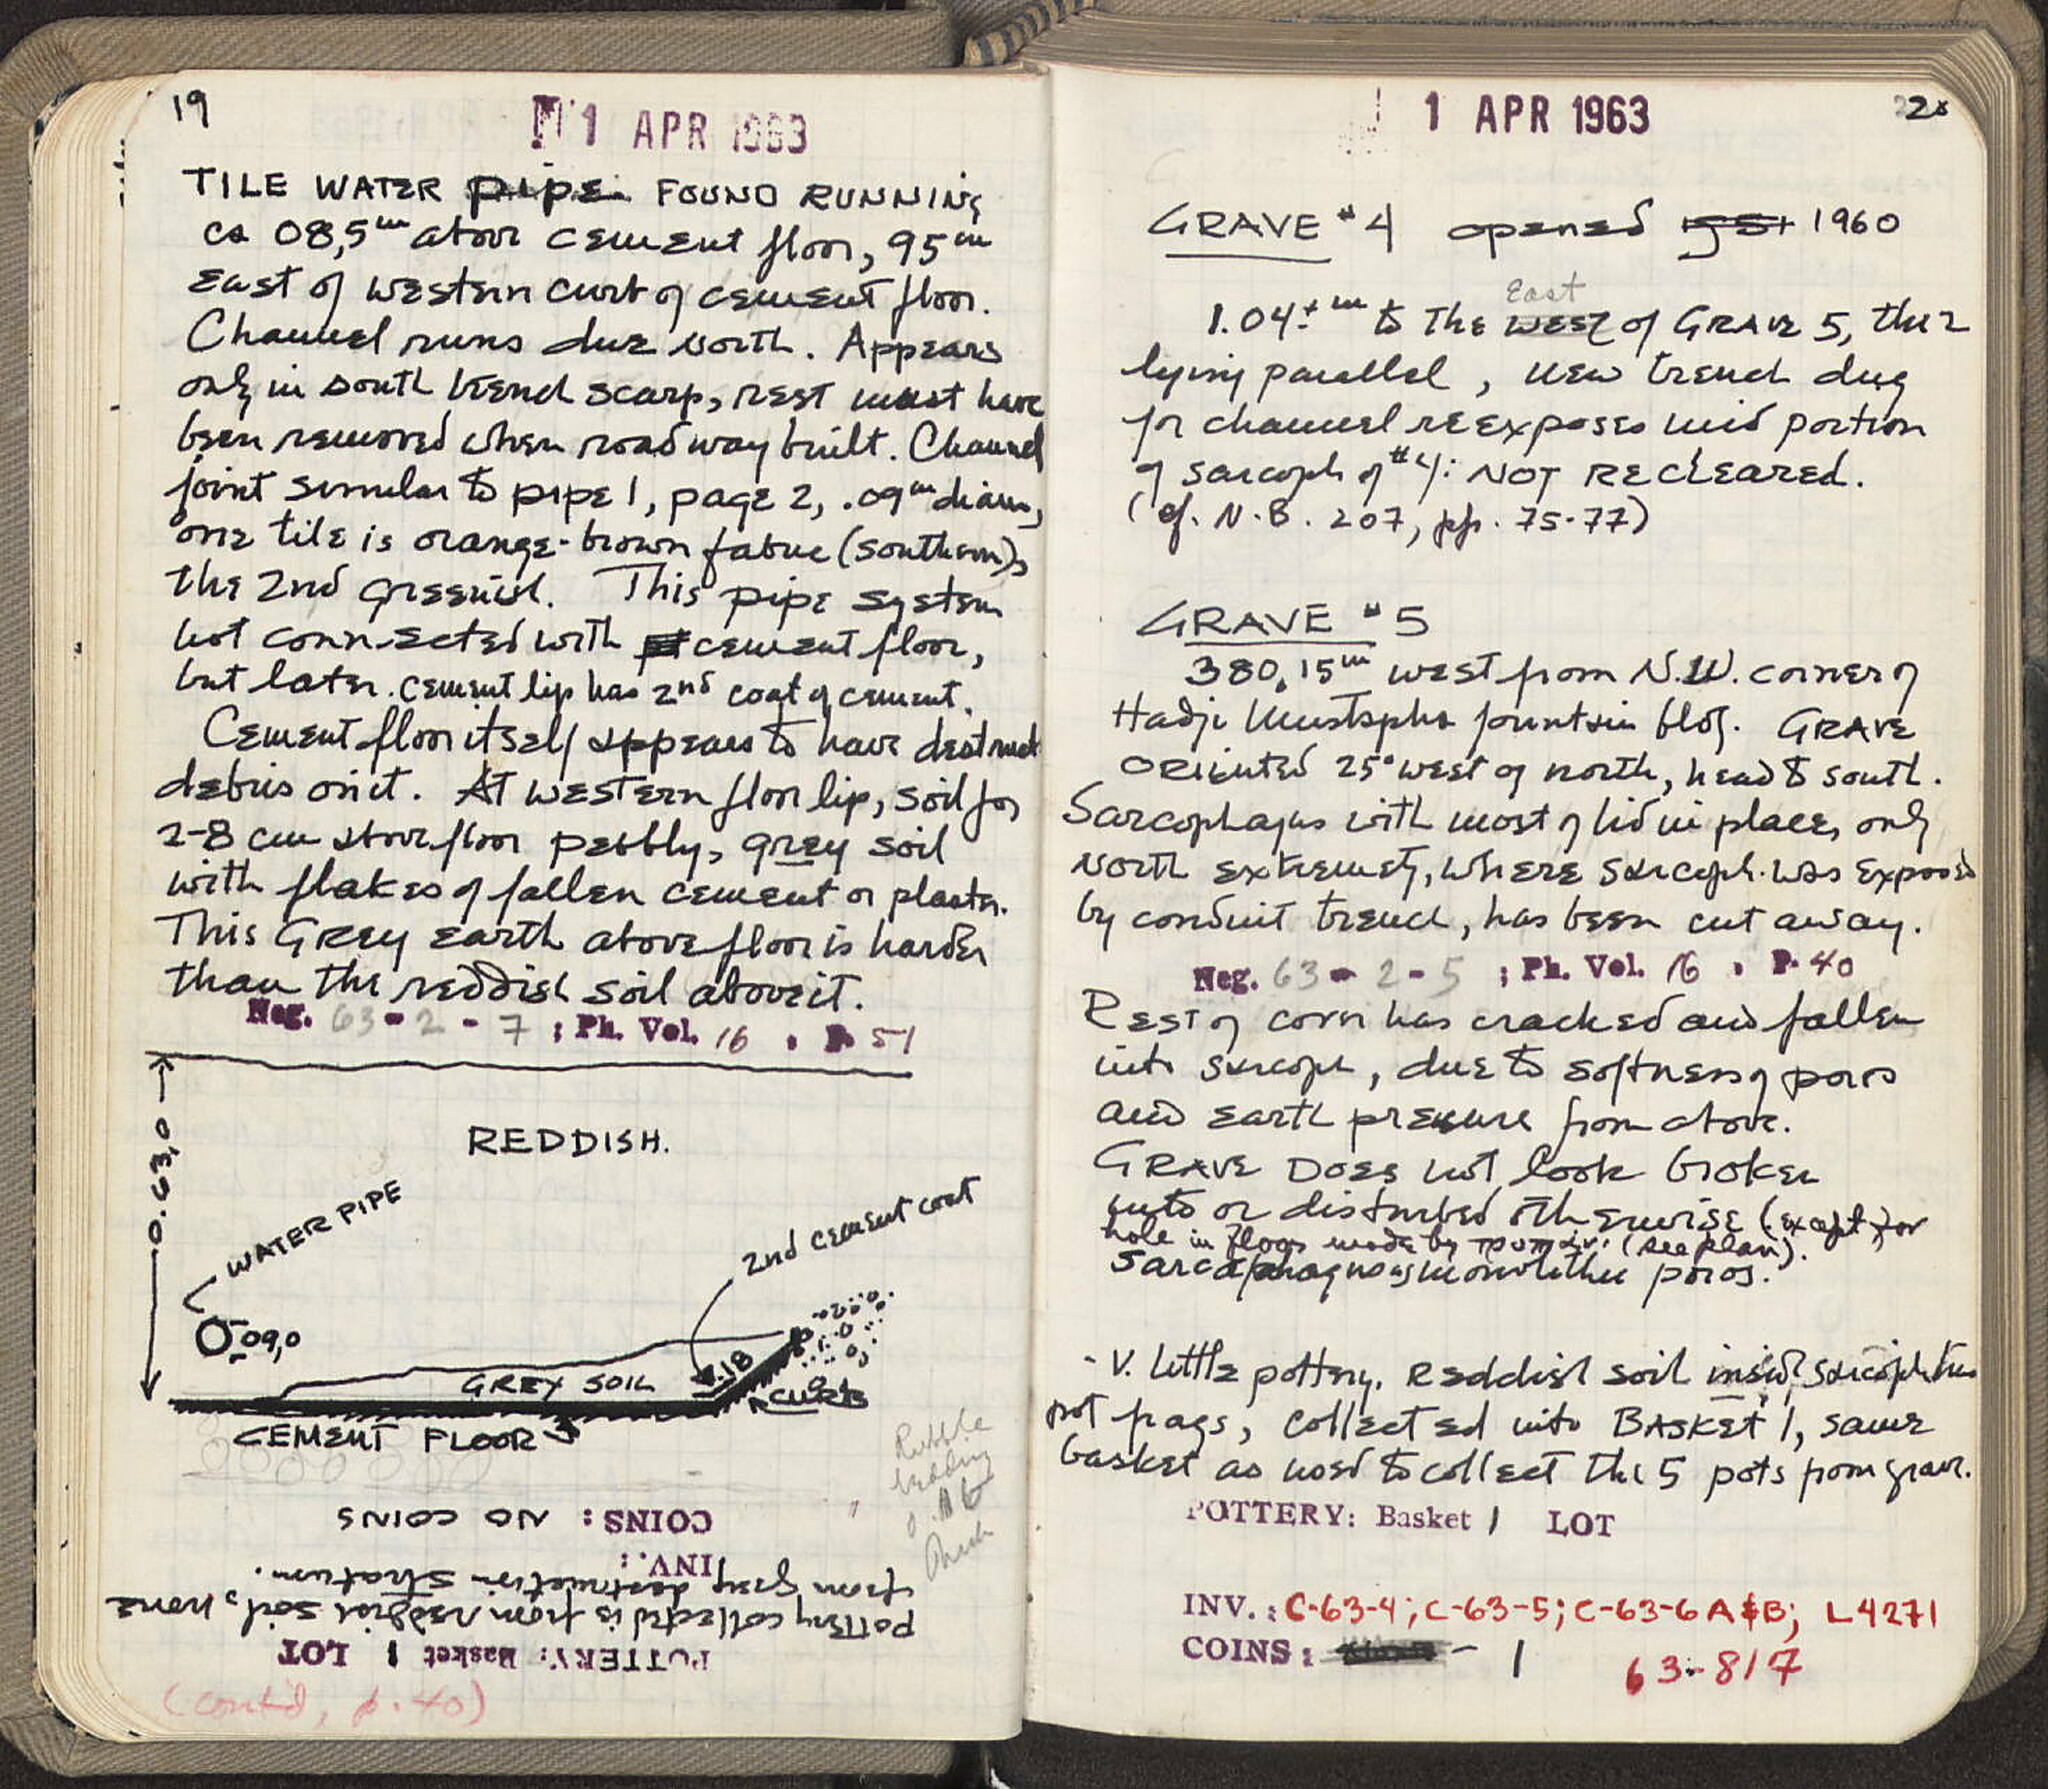 19
1 APR 1963
TILE WATER pipe FOUND RUNNING
ca 08,5m above cement floor, 95m
East of western curb of cement floor.
Channel runs due North. Appears
only in south trench scarp, rest must have
been removed when roadway built. Channel
joint similar to pipe 1, page 2, .09m diam,
one tile is orange-brown fabric (southern),
the 2nd greenish. This pipe system
not connected with cement floor,
but later. cement lip has 2nd coat of cement.
Cement floor itself appears to have destruct
debris on it. At western floor lip, soil for
2-8 cm above floor pebbly, grey soil
with flakes of fallen cement or plaster.
This Grey earth above floor is harder
than the reddish soil above it.
Neg. 63-2-7 ; Ph. Vol. 16 , P. 51
REDDISH.
0.63,0
WATER PIPE
2nd cement coat
09,0
.18
GREY SOIL
CURB
CEMENT FLOOR
Rubble
bedding
thick
POTTERY: Basket 1 LOT
pottery collected is from reddish soil, none
from grey destruction stratum.
INV.:
COINS: NO COINS
(cont'd, p. 40)
1 APR 1963
20
GRAVE #4 opened 1960
East
1.04± m to the west of GRAVE 5, this
lying parallel, new trench dug
for channel reexposes mid portion
of sarcoph of #4: NOT RECLEARED.
(cf. N.B. 207, pp. 75-77)
GRAVE #5
380,15m west from N.W. corner of
Hadji Mustapha fountain bldg. GRAVE
oriented 25° west of north, head to south.
Sarcophagus with most of lid in place, only
North extremety, where sarcoph. was exposed
by conduit trench, has been cut away.
Neg. 63-2-5 ; Ph. Vol. 16 , P. 40
Rest of cover has cracked and fallen
into sarcoph, due to softness of poros
and earth pressure from above.
GRAVE Does not look broken
into or disturbed otherwise (except for
hole in floor made by (see plan).
Sarcophagus is monolithic poros.
- V. little pottery. Reddish soil inside sarcoph has
pot frags, collected into BASKET 1, same
basket as used to collect the 5 pots from grave.
POTTERY: Basket 1 LOT
INV.: C-63-4; C-63-5; C-63-6 A&B; L4271
COINS: - 1 63-817